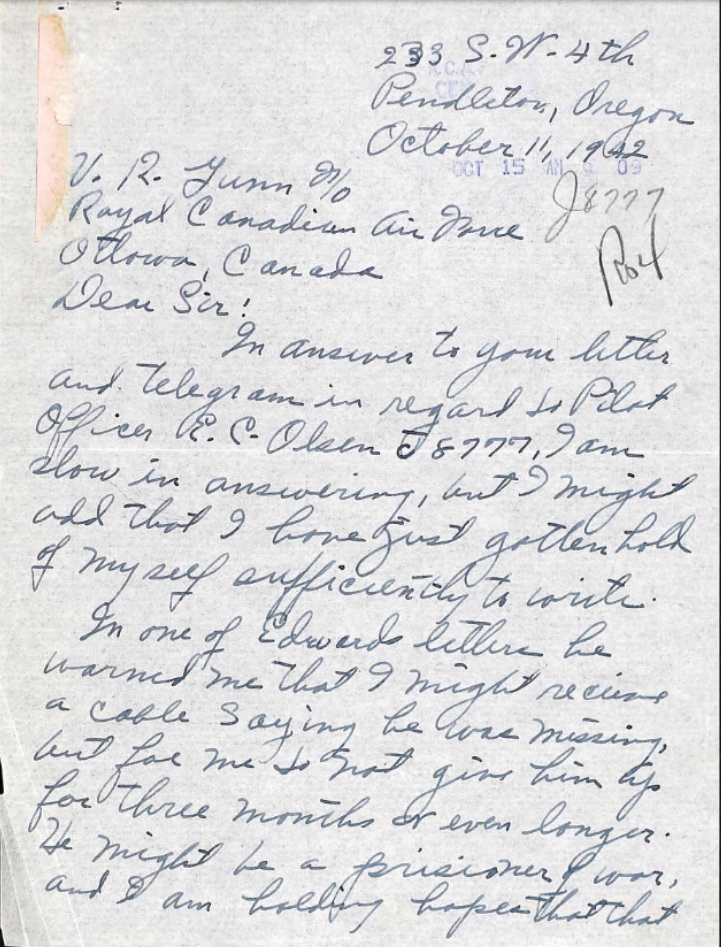 233 S.W. 4th
Pendleton, Oregon
October 11, 1942
OCT 15 AM 09
V. R. Gunn F/O
J8777
Royal Canadian Air Force
Ottowa, Canada
Dear Sir!
In answer to your letter
and telegram in regard to Pilot
Officer R. C. Olsen J8777, I am
slow in answering, but I might
add that I have just gotten hold
of myself sufficiently to write.
In one of Edwards letters he
warned me that I might recieve
a cable saying he was missing,
but for me to not give him up
for three months or even longer.
He might be a prisioner of war,
and I am holding hopes that that